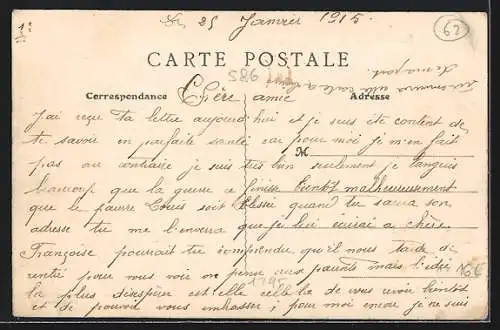 1°
Le 25 Janvier 1915.
62
CARTE POSTALE
586
Correspondance
Adresse
Chère amie
J'ai reçu ta lettre aujourd'hui et je suis été content de
te savoir en parfaite santé car pour moi je m'en fait
M
pas au contraire je suis très bien seulement je languis
beaucoup que la guerre finisse bientôt malheureusement
que le pauvre Louis soit blessé quand tu saura son
adresse tu me l'enverra que je lui écrirai a chère
Françoise pourrait tu comprendre qu'il nous tarde de
rentré pour vous voir on pense aux parents mais l'idée
la plus désespéré est elle celle la de vous revoir bientôt
et de pouvoir vous embrasser ; pour moi encore je ne suis
1795
16€